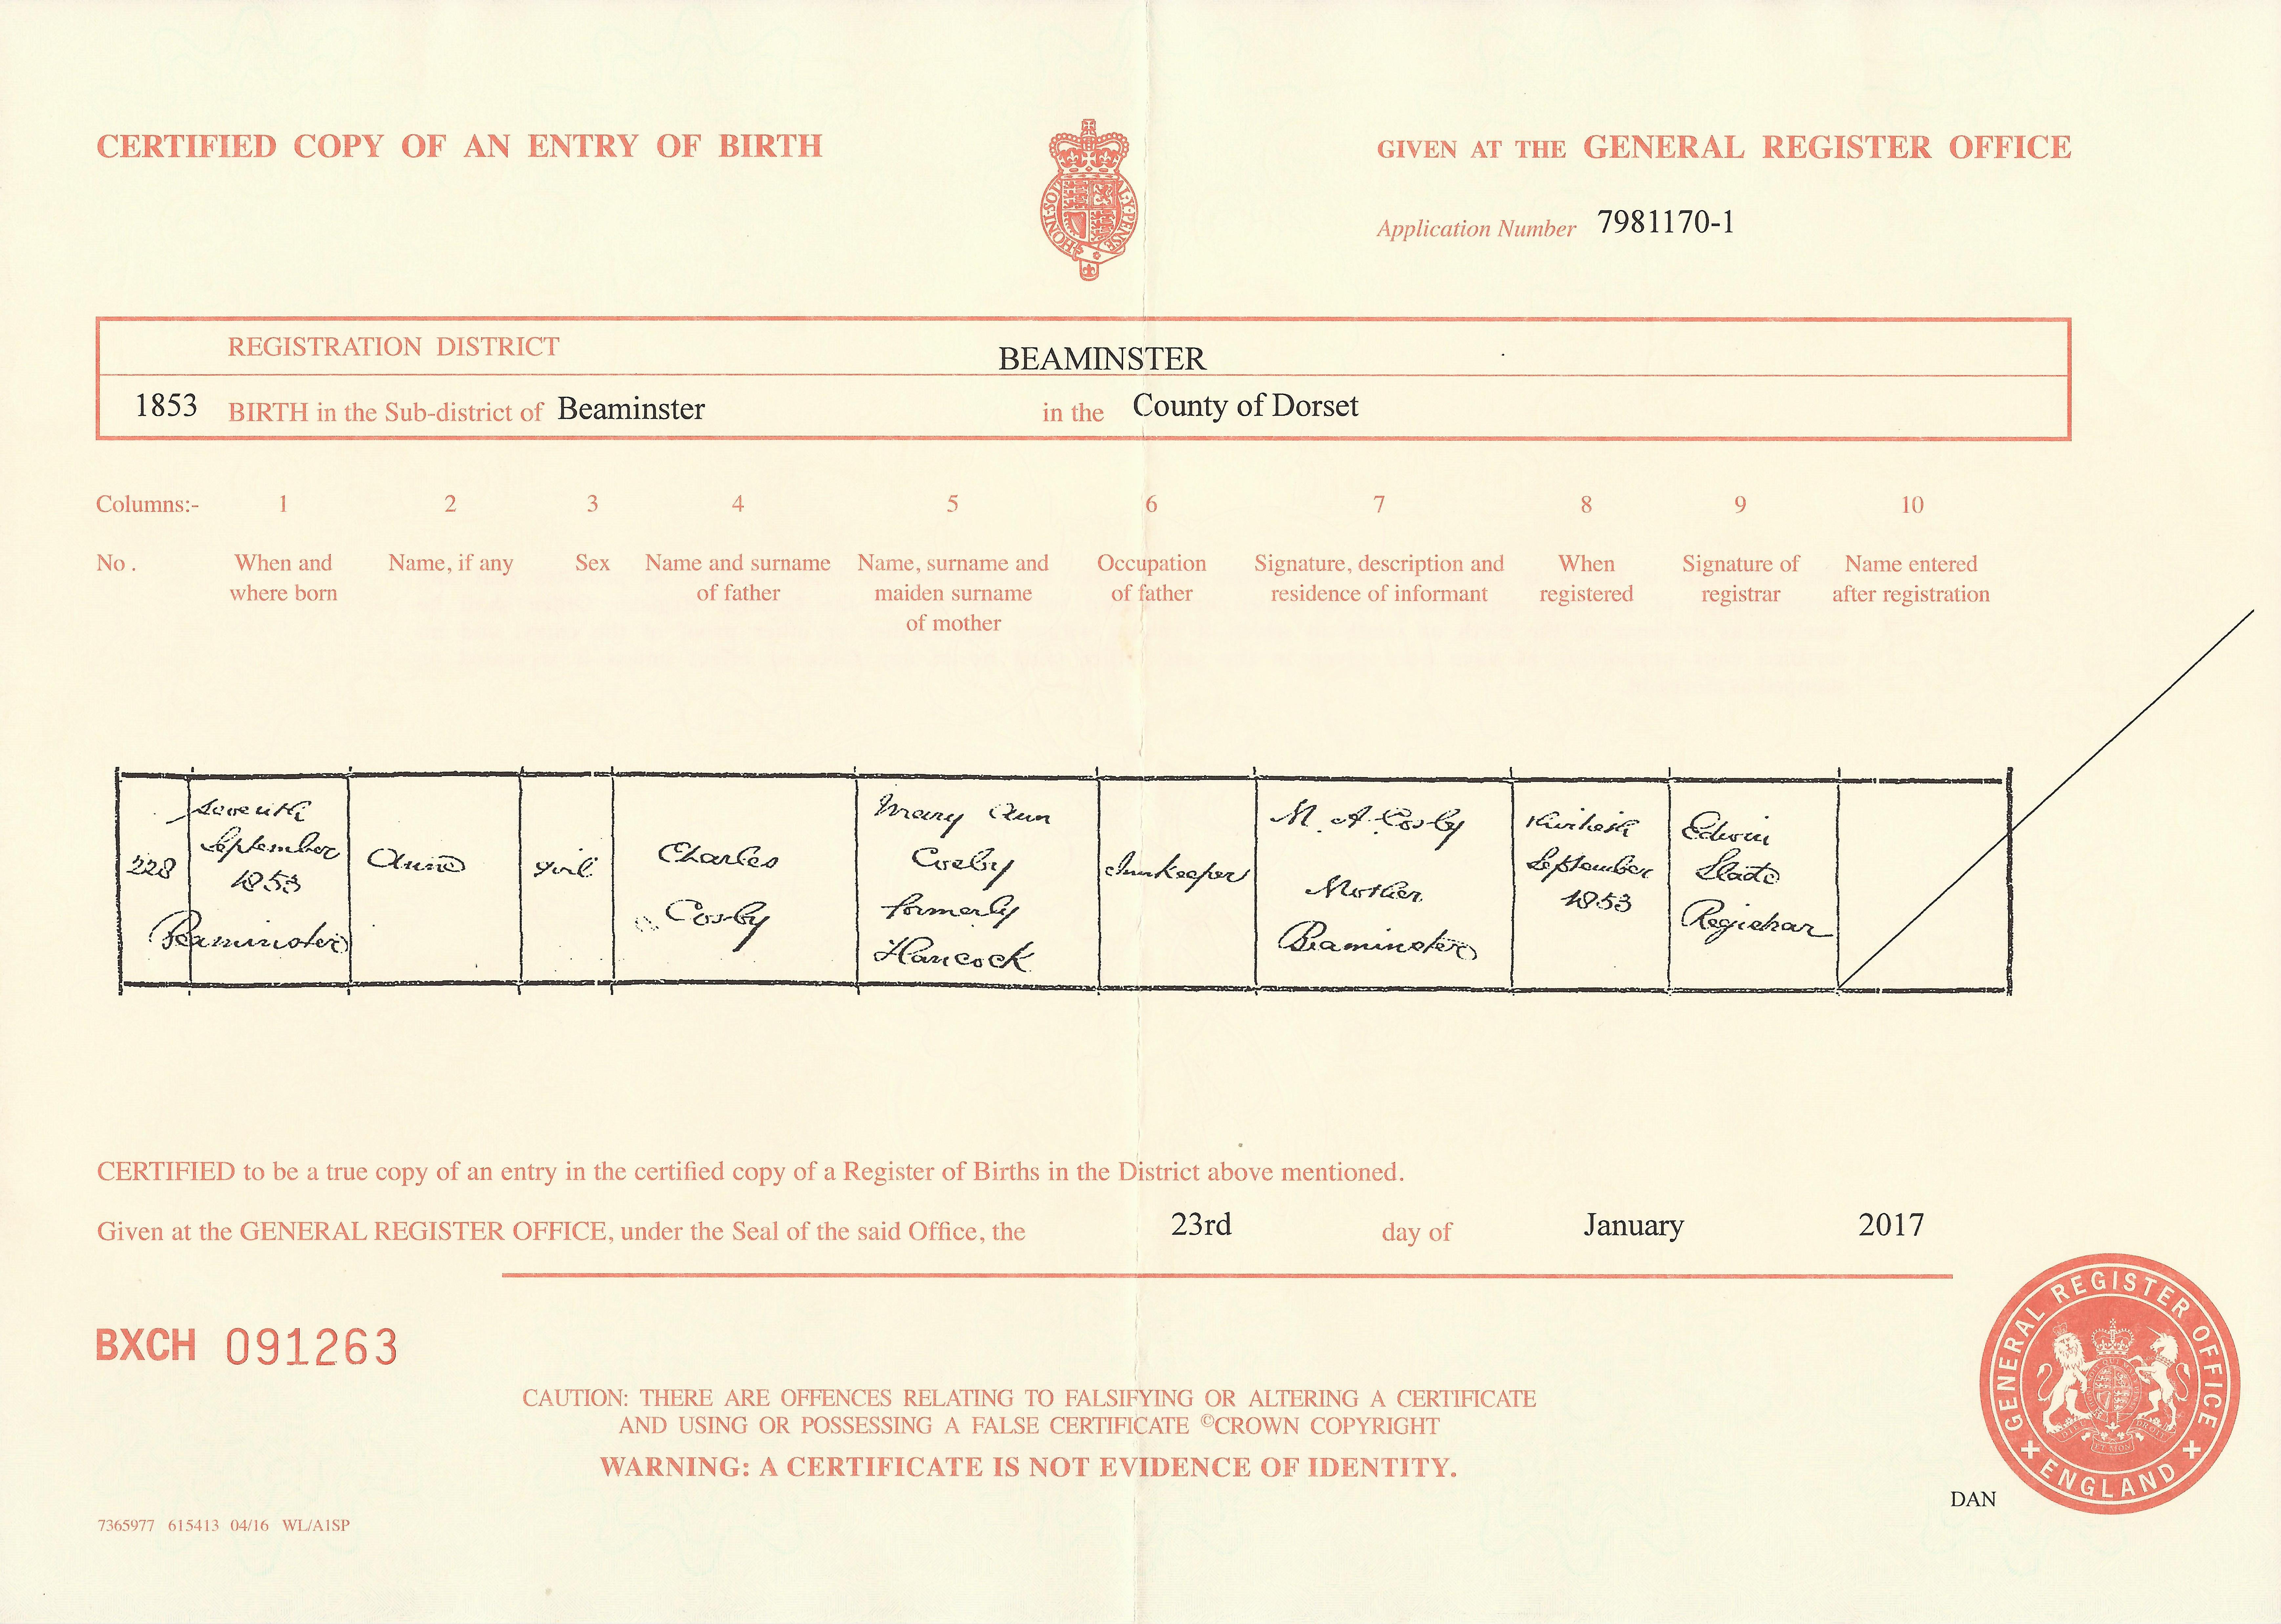 CERTIFIED COPY OF AN ENTRY OF BIRTH
GIVEN AT THE GENERAL REGISTER OFFICE
Application Number 7981170-1
REGISTRATION DISTRICT BEAMINSTER
1853 BIRTH in the Sub-district of Beaminster in the County of Dorset
Columns:- 1 2 3 4 5 6 7 8 9 10
No. When and where born
Name, if any
Sex
Name and surname of father
Name, surname and maiden surname of mother
Occupation of father
Signature, description and residence of informant
When registered
Signature of registrar
Name entered after registration
228
Seventh
September
1853
Beaminster
Anne
Girl
Charles
Cosby
Mary Ann
Cosby
formerly
Hancock
Innkeeper
M. A. Cosby
Mother
Beaminster
September
1853
Edwin
Slade
Registrar
CERTIFIED to be a true copy of an entry in the certified copy of a Register of Births in the District above mentioned.
Given at the GENERAL REGISTER OFFICE, under the Seal of the said Office, the 23rd day of January 2017
BXCH 091263
CAUTION: THERE ARE OFFENCES RELATING TO FALSIFYING OR ALTERING A CERTIFICATE
AND USING OR POSSESSING A FALSE CERTIFICATE ©CROWN COPYRIGHT
WARNING: A CERTIFICATE IS NOT EVIDENCE OF IDENTITY.
GENERAL REGISTER OFFICE
ENGLAND
DAN
7365977 615413 04/16 WL/A1SP